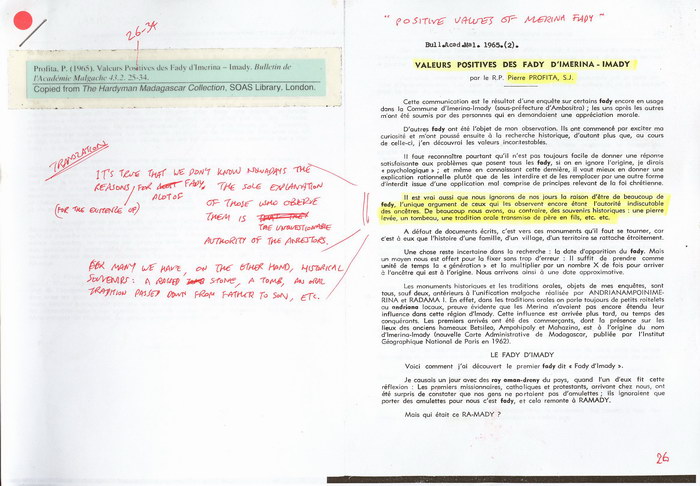 26-34
Profita, P. (1965). Valeurs Positives des Fady d'Imerina – Imady. Bulletin de
l'Académie Malgache 43.2. 25-34.
Copied from The Hardyman Madagascar Collection, SOAS Library, London.
TRANSLATION:
IT'S TRUE THAT WE DON'T KNOW NOWADAYS THE
REASONS FOR FADY, THE SOLE EXPLANATION
(FOR THE EXISTENCE OF) A LOT OF OF THOSE WHO OBSERVE
THEM IS
THE UNQUESTIONABLE
AUTHORITY OF THE ANCESTORS.
FOR MANY WE HAVE, ON THE OTHER HAND, HISTORICAL
SOUVENIRS: A RAISED STONE, A TOMB, AN ORAL
TRADITION PASSED DOWN FROM FATHER TO SON, ETC.
"POSITIVE VALUES OF MERINA FADY"
Bull.Acad.Mal. 1965.(2).
VALEURS POSITIVES DES FADY D'IMERINA - IMADY
par le R.P. Pierre PROFITA, S.J.
Cette communication est le résultat d'une enquête sur certains fady encore en usage
dans la Commune d'Imerina-Imady (sous-préfecture d'Ambositra) ; les uns après les autres
m'ont été soumis par des personnes qui en demandaient une appréciation morale.
D'autres fady ont été l'objet de mon observation. Ils ont commencé par exciter ma
curiosité et m'ont poussé ensuite à la recherche historique, d'autant plus que, au cours
de celle-ci, j'en découvrai les valeurs incontestables.
Il faut reconnaître pourtant qu'il n'est pas toujours facile de donner une réponse
satisfaisante aux problèmes que posent tous les fady, si on en ignore l'origine, je dirais
« psychologique » ; et même en connaissant cette dernière, il vaut mieux en donner une
explication rationnelle plutôt que de les interdire et de les remplacer par une autre forme
d'interdit issue d'une application mal comprise de principes relevant de la foi chrétienne.
Il est vrai aussi que nous ignorons de nos jours la raison d'être de beaucoup de
fady, l'unique argument de ceux qui les observent encore étant l'autorité indiscutable
des ancêtres. De beaucoup nous avons, au contraire, des souvenirs historiques : une pierre
levée, un tombeau, une tradition orale transmise de père en fils, etc. etc.
A défaut de documents écrits, c'est vers ces monuments qu'il faut se tourner, car
c'est à eux que l'histoire d'une famille, d'un village, d'un territoire se rattache étroitement.
Une chose reste incertaine dans la recherche : la date d'apparition du fady. Mais
un moyen nous est offert pour la fixer sans trop d'erreur : Il suffit de prendre comme
unité de temps la « génération » et la multiplier par un nombre X de fois pour arriver
à l'ancêtre qui est à l'origine. Nous arrivons ainsi à une date approximative.
Les monuments historiques et les traditions orales, objets de mes enquêtes, sont
tous, sauf deux, antérieurs à l'unification malgache réalisée par ANDRIANAMPOINIME-
RINA et RADAMA I. En effet, dans les traditions orales on parle toujours de petits roitelets
ou andriana locaux, preuve évidente que les Merina n'avaient pas encore étendu leur
influence dans cette région d'Imady. Cette influence est arrivée plus tard, au temps des
conquérants. Les premiers arrivés ont été des commerçants, dont la présence sur les
lieux des anciens hameaux Betsileo, Ampohipaly et Mahazina, est à l'origine du nom
d'Imerina-Imady (nouvelle Carte Administrative de Madagascar, publiée par l'Institut
Géographique National de Paris en 1962).
LE FADY D'IMADY
Voici comment j'ai découvert le premier fady dit « Fady d'Imady ».
Je causais un jour avec des ray aman-dreny du pays, quand l'un d'eux fit cette
réflexion : Les premiers missionnaires, catholiques et protestants, arrivant chez nous, ont
été surpris de constater que nos gens ne portaient pas d'amulettes ; ils ignoraient que
porter des amulettes pour nous c'est fady, et cela remonte à RAMADY.
Mais qui était ce RA-MADY ?
26